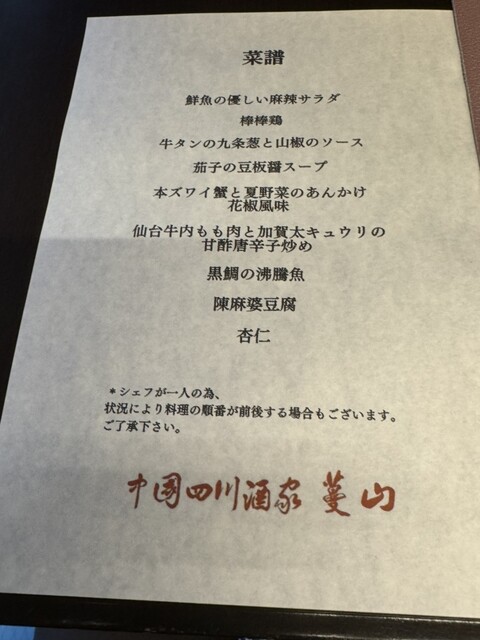 菜譜
鮮魚の優しい麻辣サラダ
棒棒鶏
牛タンの九条葱と山椒のソース
茄子の豆板醤スープ
本ズワイ蟹と夏野菜のあんかけ
花椒風味
仙台牛内もも肉と加賀太キュウリの
甘酢唐辛子炒め
黒鯛の沸騰魚
陳麻婆豆腐
杏仁
＊シェフが一人の為、
状況により料理の順番が前後する場合もございます。
ご了承下さい。
中国四川酒家 蔓山